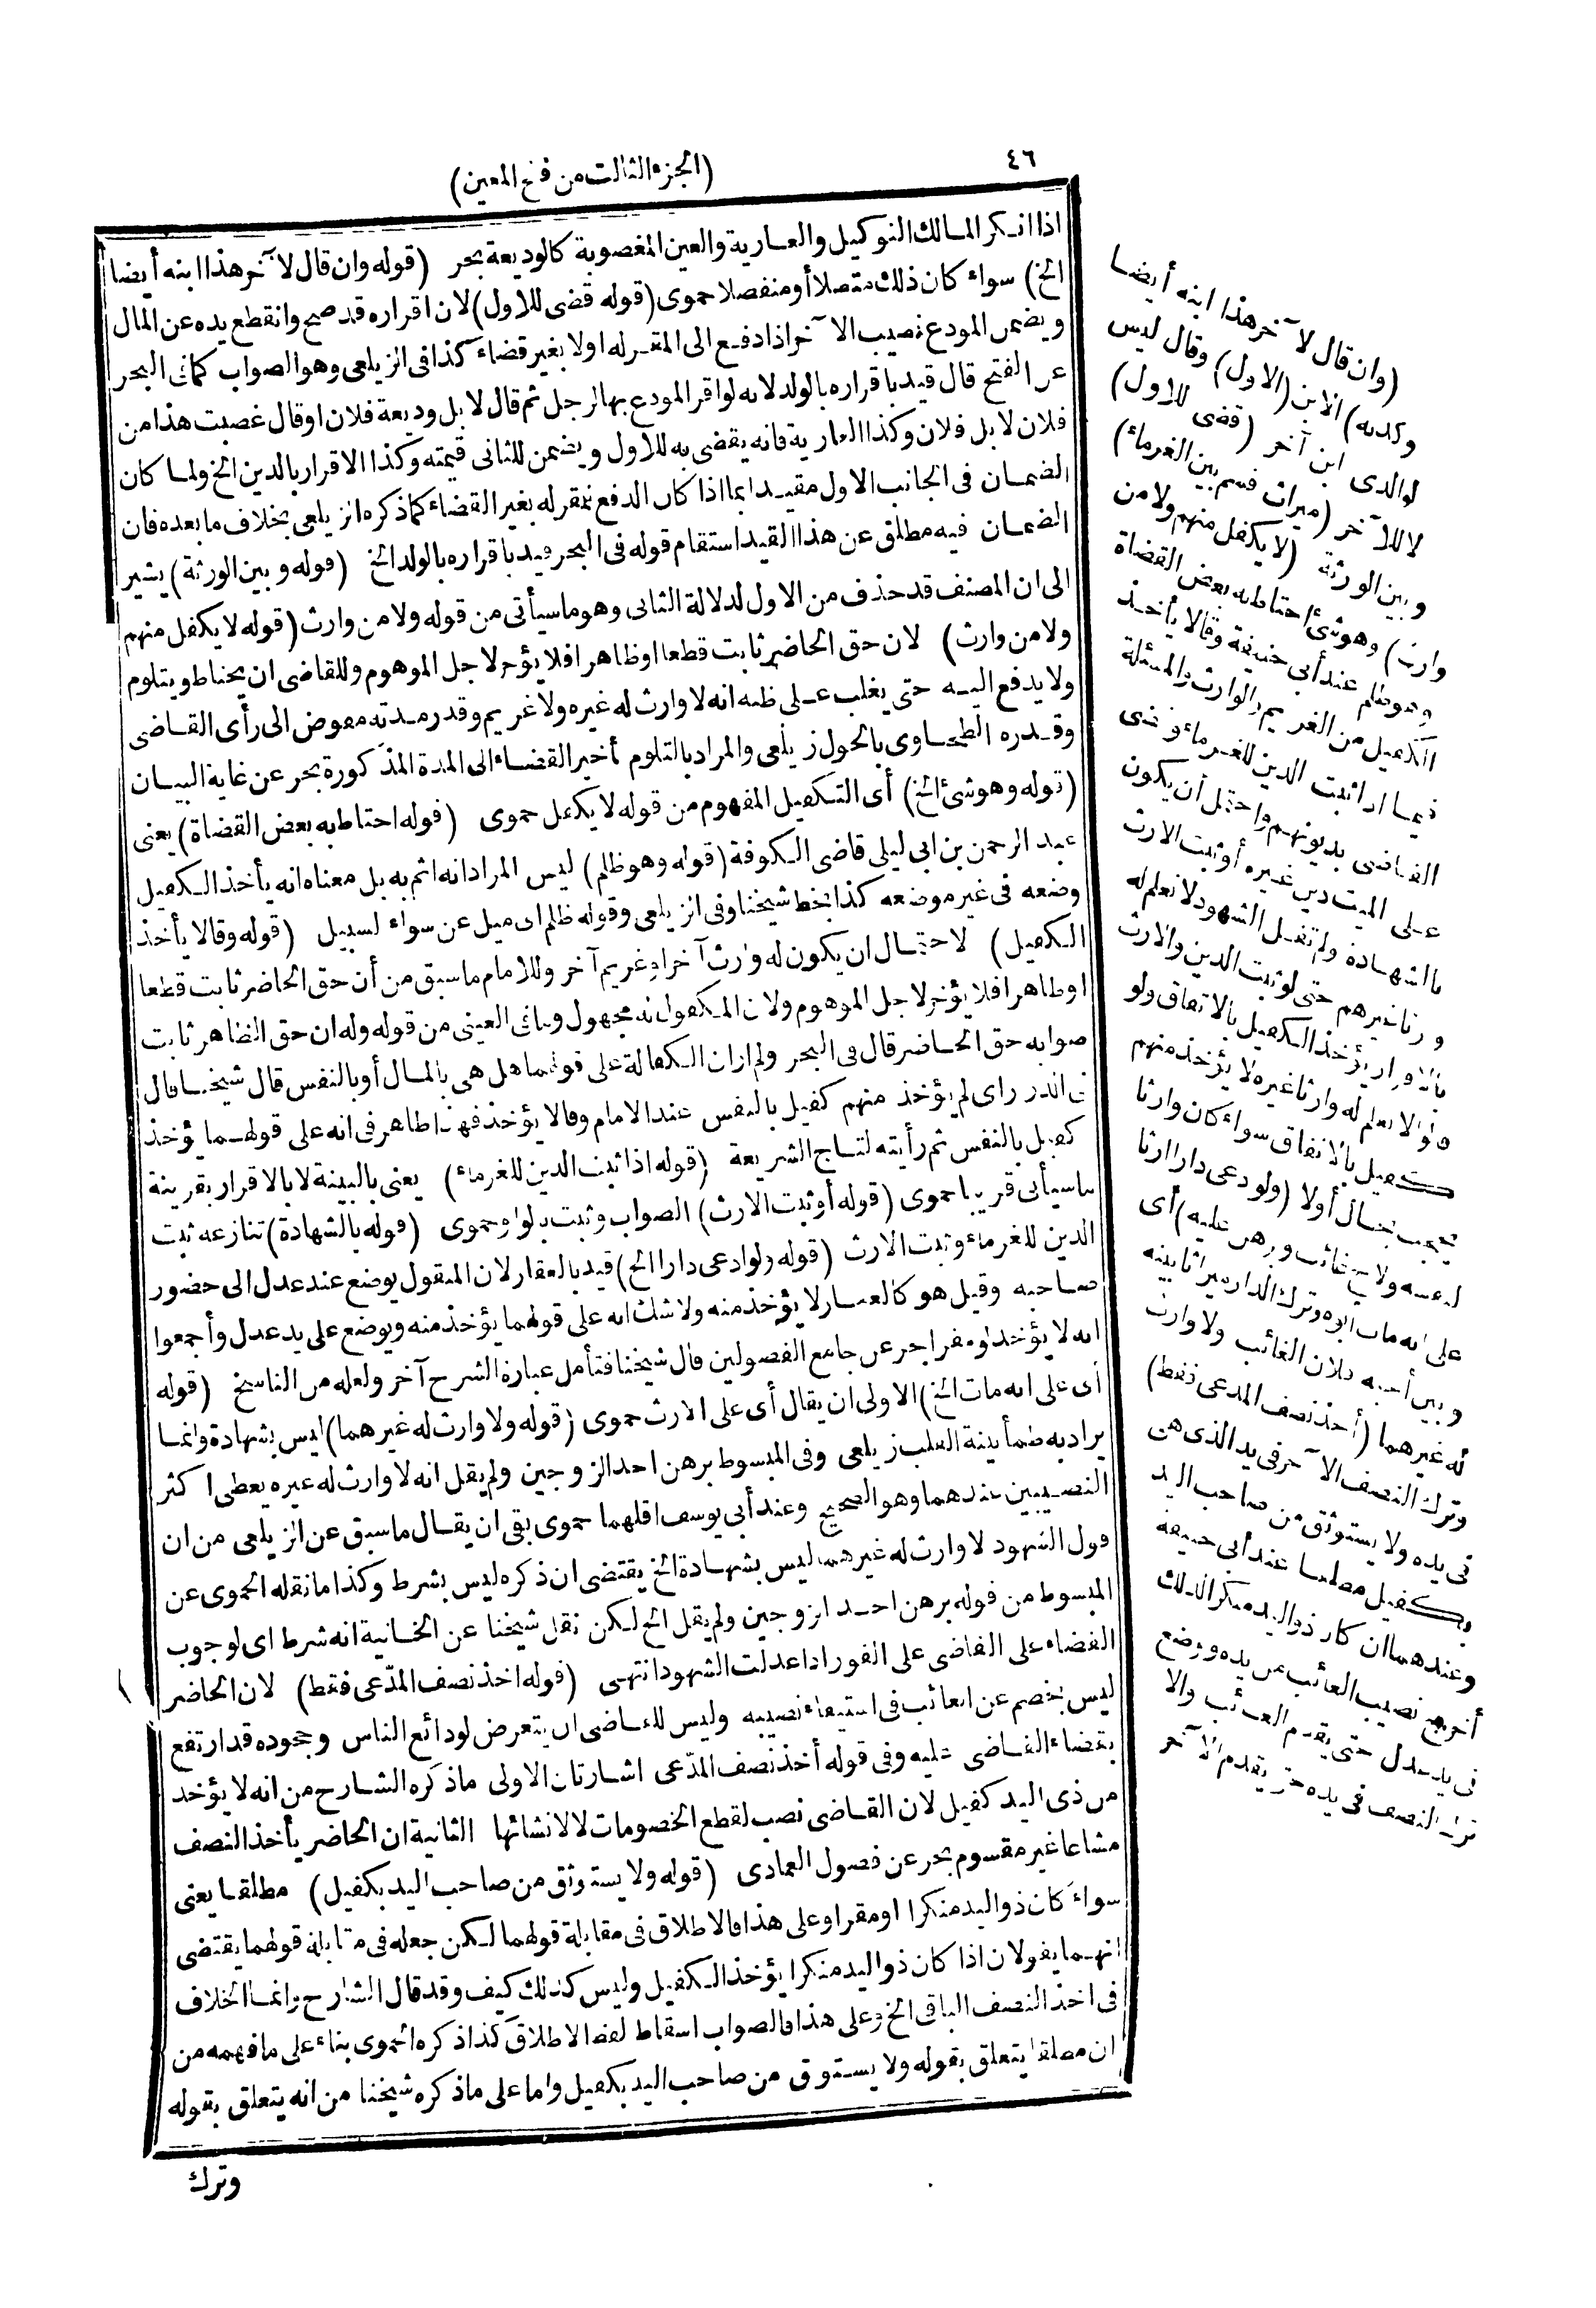 ٤٦
(الجزء الثالث من فتح المعين)
اذا انكر المالك التوكيل والعارية والعين المغصوبة كالوديعة بحر (قوله وان قال لآخر هذا ابنه أيضا
الخ) سواء كان ذلك متصلا أو منفصلا حموى (قوله قضى للاول) لان اقراره قد صح وانقطع يده عن المال
ويضمن المودع نصيب الآخر اذا دفع الى المقر له اولا بغير قضاء كذا فى الزيلعى وهو الصواب كما فى البحر
عن الفتح قال قيد باقراره بالولد لانه لو اقر المودع بها لرجل ثم قال لا بل وديعة فلان او قال غصبت هذا من
فلان لا بل فلان وكذا العارية فانه يقضى به للاول ويضمن للثانى قيمته وكذا الاقرار بالدين الخ ولما كان
الضمان فى الجانب الاول مقيدا بما اذا كان الدفع للمقر له بغير القضاء كما ذكره الزيلعى بخلاف ما بعده فان
الضمان فيه مطلق عن هذا القيد استقام قوله فى البحر قيد باقراره بالولد الخ (قوله وبين الورثة) يشير
الى ان المصنف قد حذف من الاول لدلالة الثانى وهو ما سيأتى من قوله ولا من وارث (قوله لا يكفل منهم
ولا من وارث) لان حق الحاضر ثابت قطعا او ظاهرا فلا يؤخر لاجل الموهوم وللقاضى ان يحتاط ويتلوم
ولا يدفع اليه حتى يغلب على ظنه انه لا وارث له غيره ولا غريم وقدر مدته مفوض الى رأى القاضى
وقدره الطحاوى بالحول زيلعى والمراد بالتلوم تأخير القضاء الى المدة المذكورة بحر عن غاية البيان
(قوله وهو شئ الخ) أى التكفيل المفهوم من قوله لا يكفل حموى (قوله احتاط به بعض القضاة) يعنى
عبد الرحمن بن ابى ليلى قاضى الكوفة (قوله وهو ظلم) ليس المراد انه اثم به بل معناه انه يأخذ الكفيل
وضعه فى غير موضعه كذا بخط شيخنا وفى الزيلعى وقوله ظلم اى ميل عن سواء لسبيل (قوله وقالا يأخذ
الكفيل) لاحتمال ان يكون له وارث آخر او غريم آخر وللامام ما سبق من أن حق الحاضر ثابت قطعا
او ظاهرا فلا يؤخر لاجل الموهوم ولان المكفول له مجهول وما فى العينى من قوله وله ان حق الظاهر ثابت
صوابه حق الحاضر قال فى البحر ولم ار ان الكفالة على قولهما هل هى بالمال أو بالنفس قال شيخنا قال
فى الدرر اى لم يؤخذ منهم كفيل بالنفس عند الامام وقالا يؤخذ فهذا ظاهر فى انه على قولهما يؤخذ
كفيل بالنفس ثم رأيته لتاج الشريعة (قوله اذا ثبت الدين للغرماء) يعنى بالبينة لا بالاقرار بقرينة
ما سيأتى قريبا حموى (قوله أو ثبت الارث) الصواب وثبت بالواو حموى (قوله بالشهادة) تنازعه ثبت
الدين للغرماء وثبت الارث (قوله ولو ادعى دارا الخ) قيد بالعقار لان المنقول يوضع عند عدل الى حضور
صاحبه وقيل هو كالعقار لا يؤخذ منه ولا شك انه على قولهما يؤخذ منه ويوضع على يد عدل وأجمعوا
انه لا يؤخذ لو مقرا بحر عن جامع الفصولين قال شيخنا فتأمل عبارة الشرح آخر ولعله من الناسخ (قوله
أى على انه مات الخ) الاولى ان يقال أى على الارث حموى (قوله ولا وارث له غيرهما) ليس بشهادة وانما
يراد به طمأنينة القلب زيلعى وفى المبسوط برهن احد الزوجين ولم يقل انه لا وارث له غيره يعطى اكثر
النصيبين عندهما وهو الصحيح وعند أبى يوسف اقلهما حموى بقى ان يقال ما سبق عن الزيلعى من ان
قول الشهود لا وارث له غيرهما ليس بشهادة الخ يقتضى ان ذكره ليس بشرط وكذا ما نقله الحموى عن
المبسوط من قوله برهن احد الزوجين ولم يقل الخ لكن نقل شيخنا عن الخانية انه شرط اى لوجوب
القضاء على القاضى على الفور اذا عدلت الشهود انتهى (قوله اخذ نصف المدّعى فقط) لان الحاضر
ليس بخصم عن الغائب فى استيفاء نصيبه وليس للقاضى ان يتعرض لودائع الناس وجحوده قد ارتفع
بقضاء القاضى عليه وفى قوله أخذ نصف المدّعى اشارتان الاولى ما ذكره الشارح من انه لا يؤخذ
من ذى اليد كفيل لان القاضى نصب لقطع الخصومات لا لانشائها الثانية ان الحاضر يأخذ النصف
مشاعا غير مقسوم بحر عن فصول العمادى (قوله ولا يستوثق من صاحب اليد بكفيل) مطلقا يعنى
سواء كان ذو اليد منكرا او مقرا وعلى هذا فالاطلاق فى مقابلة قولهما لكن جعله فى مقابلة قولهما يقتضى
انهما يقولان اذا كان ذو اليد منكرا يؤخذ الكفيل وليس كذلك كيف وقد قال الشارح وانما الخلاف
فى اخذ النصف الباقى الخ وعلى هذا فالصواب اسقاط لفظ الاطلاق كذا ذكره الحموى بناء على ما فهمه من
ان مطلقا يتعلق بقوله ولا يستوثق من صاحب اليد بكفيل واما على ما ذكره شيخنا من انه يتعلق بقوله
وترك
(وان قال لآخر هذا ابنه أيضا
وكذبه) الابن (الاول) وقال ليس
لوالدى ابن آخر (قضى للاول)
لا للآخر (ميراث قسم بين الغرماء)
وبين الورثة (لا يكفل منهم ولا من
وارث) وهو شئ احتاط به بعض القضاة
وهو ظلم عند أبى حنيفة وقالا يأخذ
الكفيل من الغريم والوارث والمسئلة
فيما اذا ثبت الدين للغرماء وقضى
القاضى بديونهم واحتمل أن يكون
على الميت دين غيره أو ثبت الارث
بالشهادة ولم تقل الشهود لا نعلم له
وارثا غيرهم حتى لو ثبت الدين والارث
بالاقرار يؤخذ الكفيل بالاتفاق ولو
قالوا لا نعلم له وارثا غيره لا يؤخذ منهم
كفيل بالاتفاق سواء كان وارثا
يحجب بحال أولا (ولو ادعى دارا ارثا
لنفسه ولاخ غائب وبرهن عليه) أى
على انه مات ابوه وترك الدار ميراثا بينه
وبين أخيه فلان الغائب ولا وارث
له غيرهما (أخذ نصف المدعى فقط)
وترك النصف الآخر فى يد الذى هى
فى يده ولا يستوثق من صاحب اليد
بكفيل مطلقا عند أبى حنيفة
وعندهما ان كان ذو اليد منكرا لذلك
أخرج نصيب الغائب من يده ووضع
فى يد عدل حتى يقدم الغائب والا
ترك النصف فى يده حتى يقدم الآخر